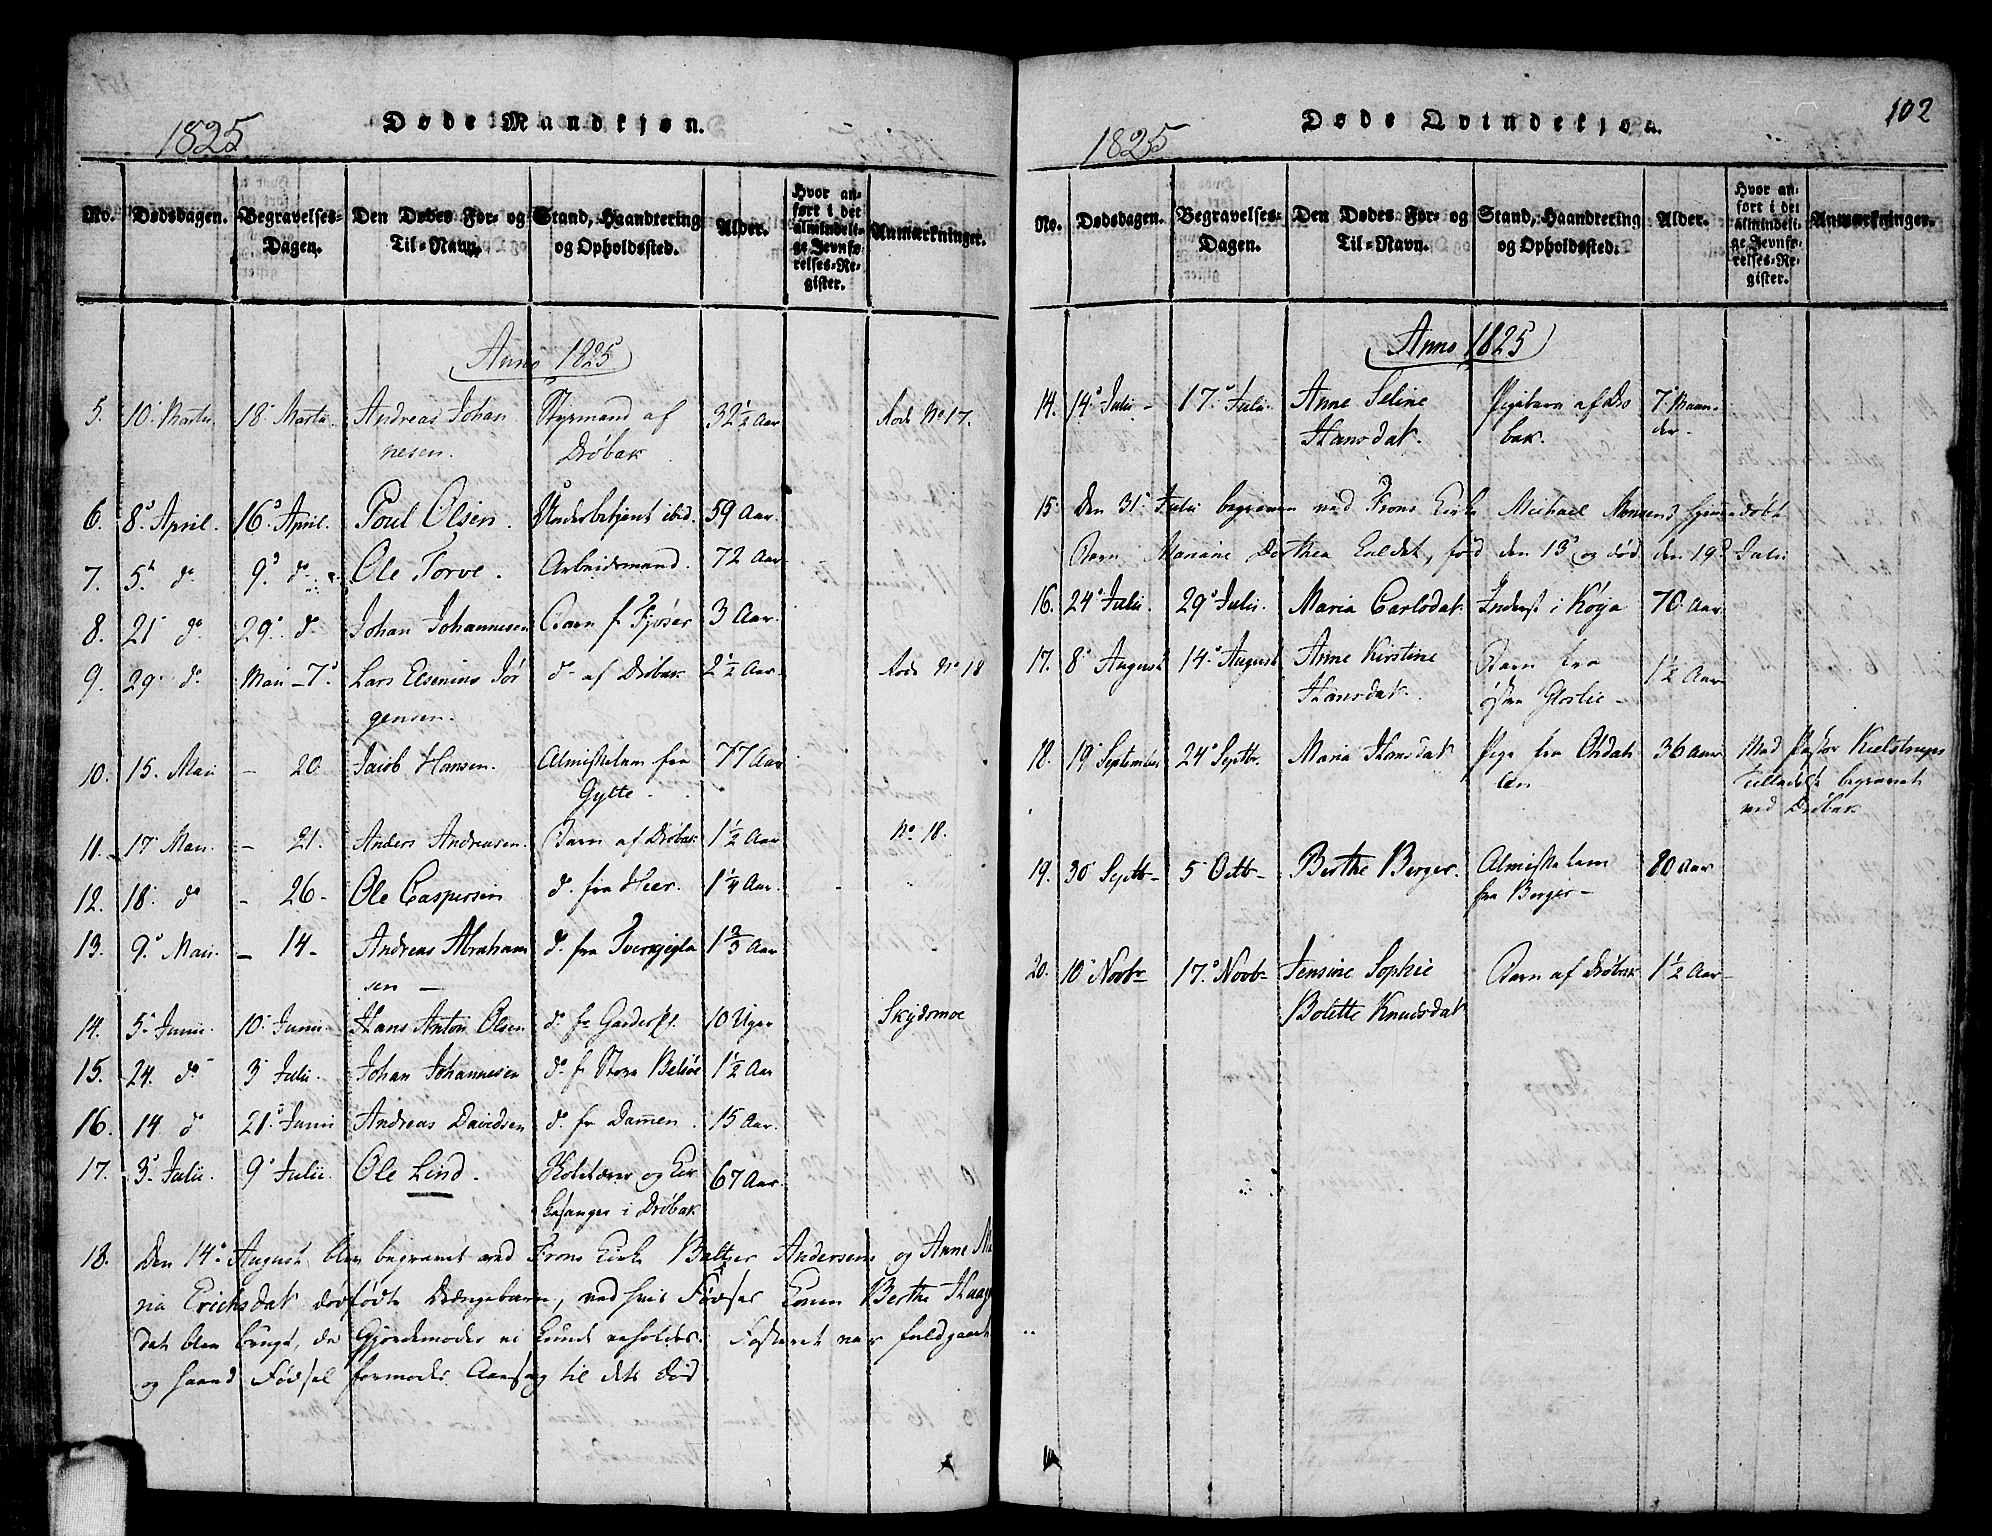 1825
Døde Mandkjøn.
No.
Dødsdagen.
Begravelses-
Dagen.
Den Dødes For- og
Til-Navn.
Stand, Haandtering
og Opholdssted.
Alder.
Hvor an-
ført i det
almindeli-
ge Jevnfø-
relses-Re-
gister.
Anmærkninger.
Anno 1825
5. 10 Martii 18 Martii Andreas Johan Styrmand af 32 1/2 Aar No 17.
nesen. Drøbak
6. 8de April. 16de April. Poul Olsen. Underbetjent ibid. 59 Aar.
7. 5te do 9de do Ole Torve. Arbeidsmand. 72 Aar
8. 21 do 29 do Johan Johannesen Barn f Fjøser 3 Aar.
9. 29 do Mai - 7de Lars Jør do af Drøbak 2 1/2 Aar No 18
gensen.
10. 15. Mai - 20. Jacob Hansen. Almisselem fra 77 Aar
Gylte.
11. 17 Mai - 21. Anders Andreasen. Barn af Drøbak 1 1/2 Aar No 18.
12. 18. do - 26- Ole Caspersen do fra Heer. 1 1/4 Aar.
13. 9de Mai. - 14 - Andreas Abraham do fra 1 2/3 Aar
sen -
14. 5te Junii. 10 Junii. Hans Anton Olsen do fr 10 Uger Skydsmoe
15. 24. do 3 Julii. Johan Johannesen do fr Store 1 1/2 Aar
16. 14 do 21 Junii Andreas Davidsen do fr Dammen. 15 Aar.
17. 3de Julii. 9 Julii. Ole Lind. Skolelærer og Kir 67 Aar.
kesanger i Drøbak
18. Den 14de August blev begravet ved Frons Kirke Baltzer Andersens og Anne Ma
ria Erichsdat dødfødte Drengebarn, ved hvis Fødsel Konen Berthe
dat blev brugt, da Gjordemoder ei kunde erholdes. Fosteret var fuldgaaet
og haard Fødsel formodes Aarsag til dets Død.
1825
Døde Qvindekjøn.
102
No.
Dødsdagen.
Begravelses-
Dagen.
Den Dødes For- og
Til-Navn.
Stand, Haandtering
og Opholdssted.
Alder.
Hvor an-
ført i det
almindeli-
ge Jevnfø-
relses-Re-
gister.
Anmærkninger.
Anno 1825
14. 14de Julii - 17. Julii. Anne Seline Pigebarn af Drø 7 Maan
Hansdat. bak. der.
15. Den 31 Julii begraven ved Frons Kirke Michael hjemmedøbt
Barn Mariane Dorthea kaldet, fød den 13de og død den 19de Julii
16. 24de Julii. 29de Julii. Maria Carlsdat. Inderst i 70. Aar
17. 8de August 14de August Anne Kirstine Barn fra 1 1/2 Aar
Hansdat. østre
18. 19 September 24de Septbr. Maria Hansdat Pige fra 36 Aar Med Pastor Kielstrups
Tilladelse begravet
ved Drøbak
19. 30 Septbr 5 Octbr Berthe Berger. Almisselem 80 Aar
fra Berger -
20. 10 Novbr 17de Novbr Jensine Sophie Barn af Drøbak 1 1/2 Aar
Bolette Knudsdat